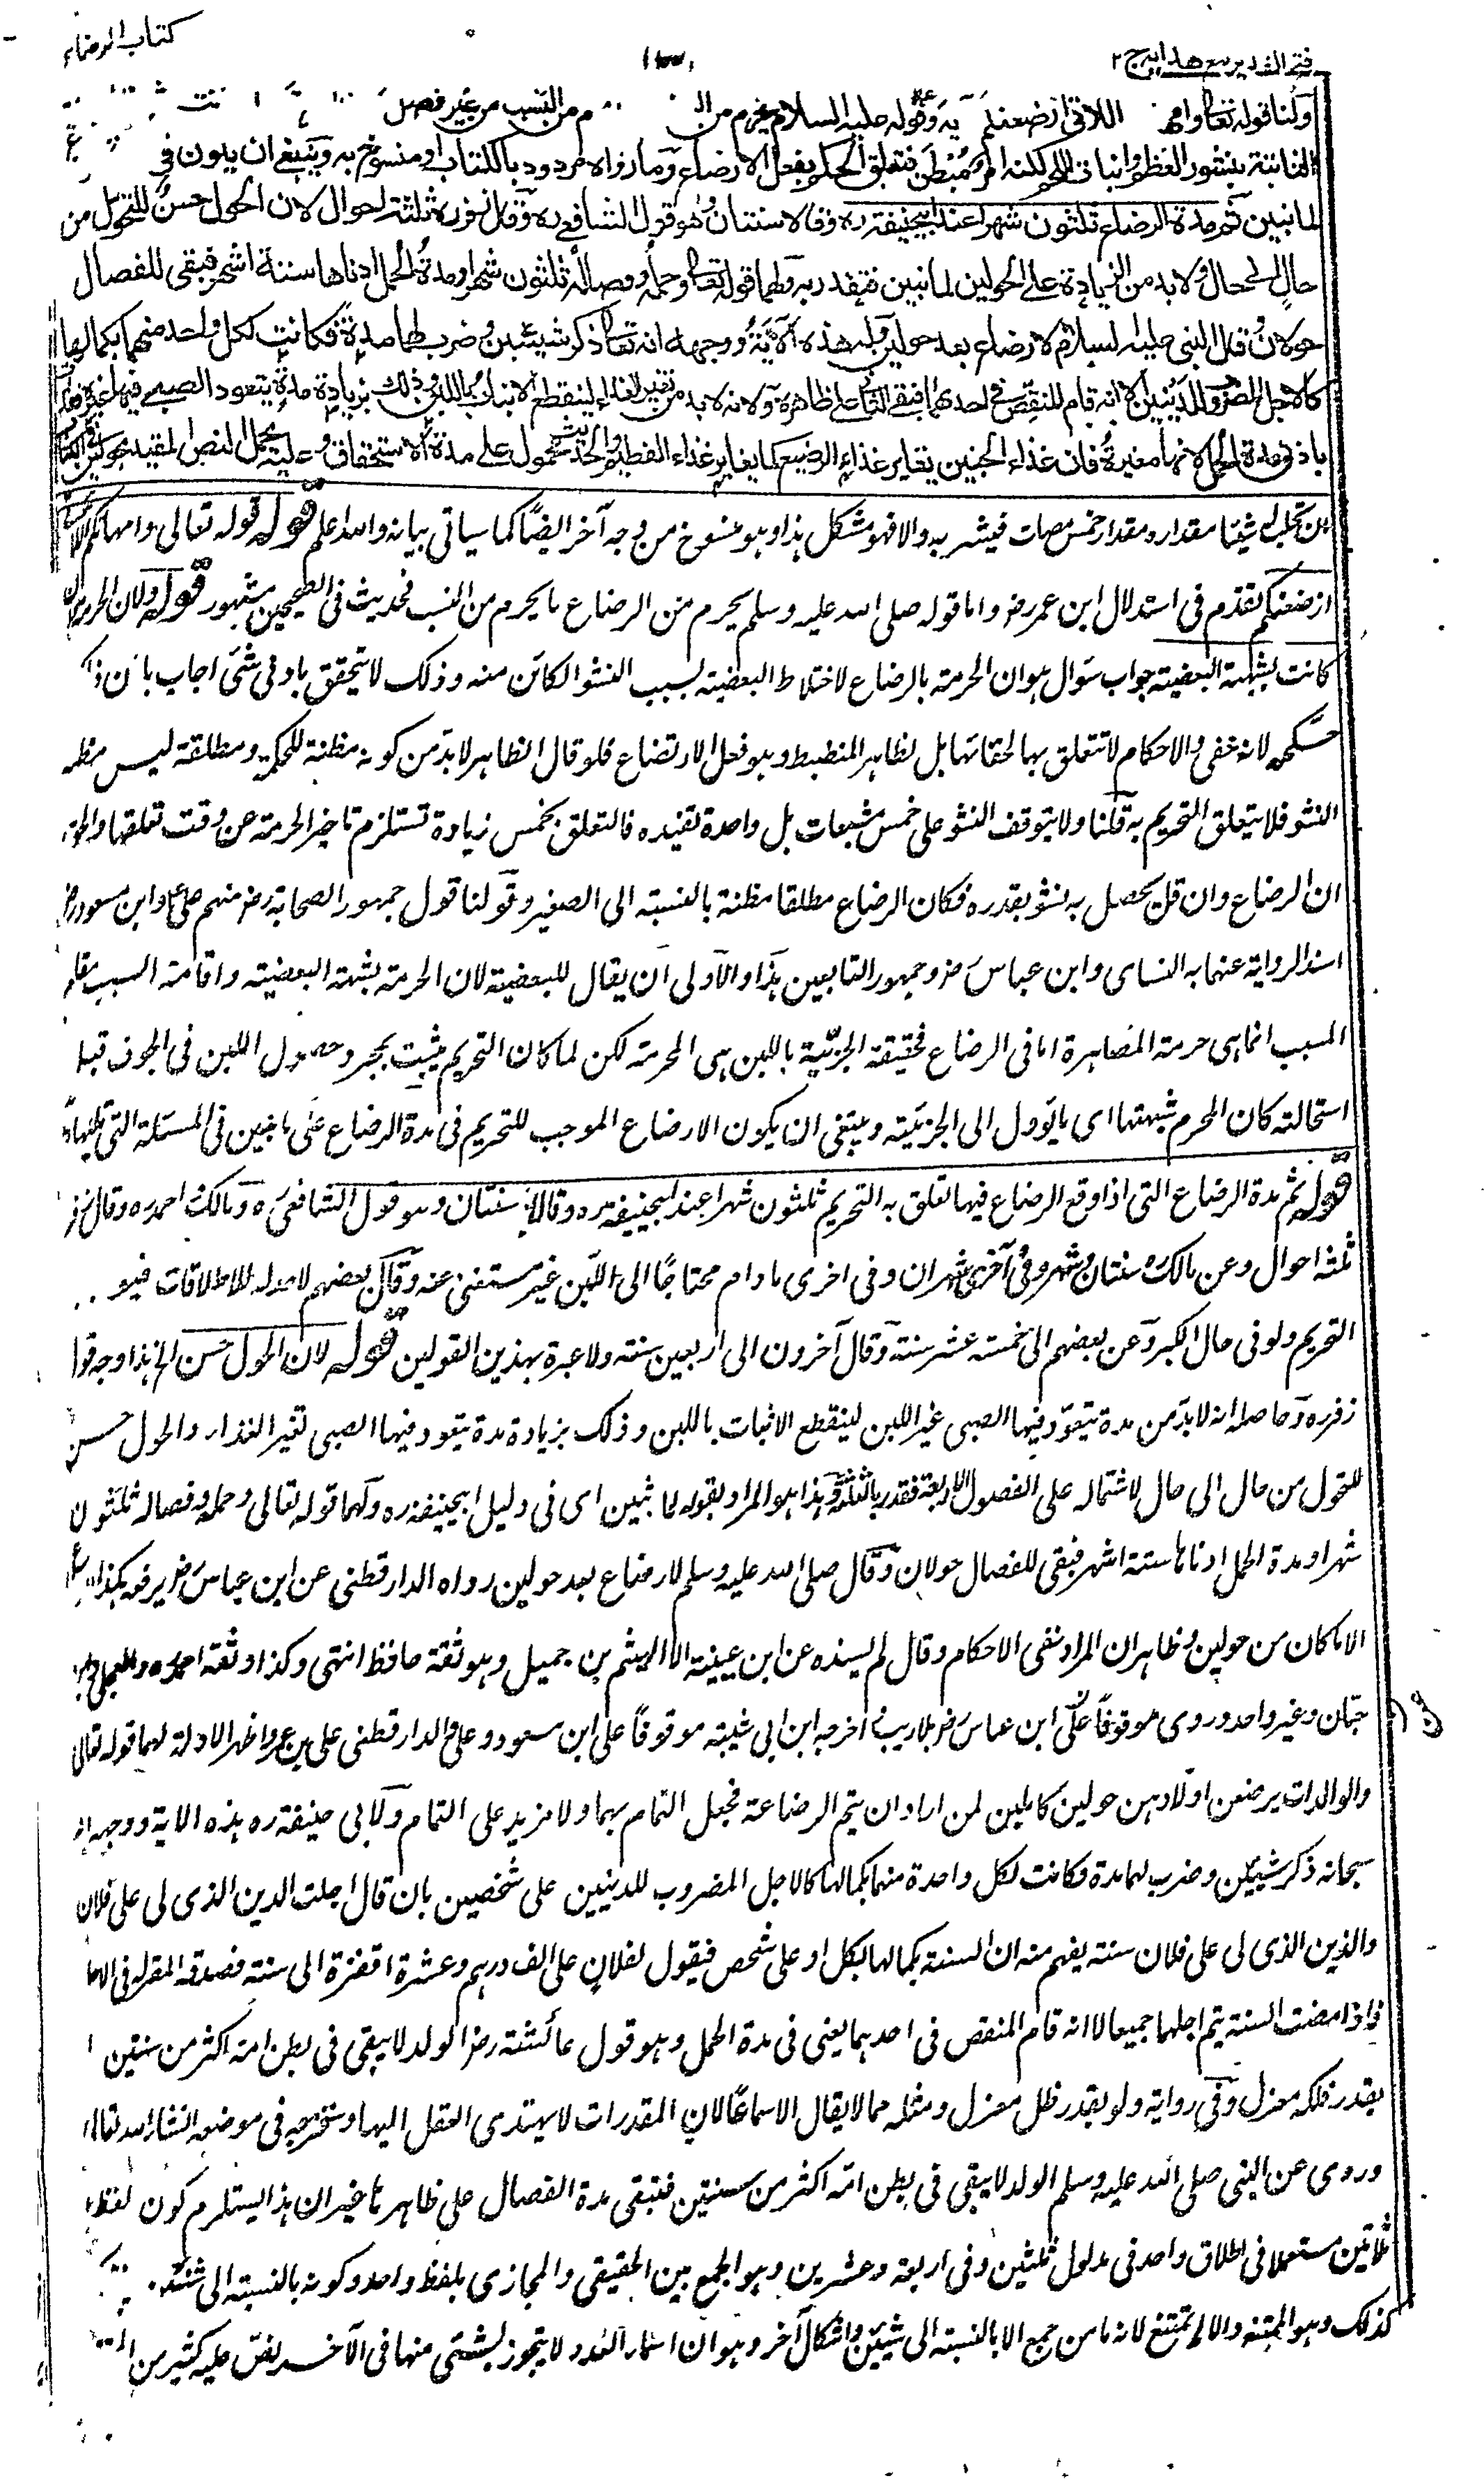 كتاب الرضاع
فتح القدير مع هدايه ج ٢
ولنا قوله تعالى وامهاتكم اللاتي ارضعنكم الآية وقوله عليه السلام يحرم من الرضاع ما يحرم من النسب من غير فصل
الثابتة بنشور العظم وانبات اللحم لكنه امر مبطن فتعلق الحكم بفعل الارضاع وما رواه مردود بالكتاب او منسوخ به وينبغي ان يكون في
لما نبين ثم مدة الرضاع ثلثون شهرا عند ابيحنيفة ره وقالا سنتان وهو قول الشافعي ره وقال زفر ره ثلثة احوال لان الحول حسن للتحول من
حال الى حال ولا بد من الزيادة على الحولين لما نبين فتقدر به ولهما قوله تعالى وحمله وفصاله ثلثون شهرا ومدة الحمل ادناها ستة اشهر فبقي للفصال
حولان وقال النبي عليه السلام لا رضاع بعد حولين وله هذه الآية ووجهه انه تعالى ذكر شيئين وضرب لهما مدة فكانت لكل واحد منهما بكمالها
كالاجل المضروب للدينين الا انه قام المنقص في احدهما فبقي الثاني على ظاهره ولانه لا بد من تغير الغذاء لينقطع الانبات باللبن وذلك بزيادة مدة يتعود الصبي فيها غيره فقدرت
بادنى مدة الحمل لانها مغيرة فان غذاء الجنين يغاير غذاء الرضيع كما يغاير غذاء الفطيم والحديث محمول على مدة الاستحقاق وعليه يحمل النص المقيد بحولين في الكتاب
ان تحلب شيئا مقداره مقدار خمس مصات فيشربه والا فهو مشكل هذا وهو منسوخ من وجه آخر ايضًا كما سياتي بيانه والله اعلم قوله قوله تعالى وامهاتكم اللاتي
ارضعنكم تقدم في استدلال ابن عمر رض واما قوله صلى الله عليه وسلم يحرم من الرضاع ما يحرم من النسب فحديث في الصحيحين مشهور قوله ولان الحرمة وان
كانت لشبهة البعضية جواب سؤال هو ان الحرمة بالرضاع لاختلاط البعضية بسبب النشو الكائن منه وذلك لا يتحقق بادنى شئ اجاب بان ذلك
حكمة لانه خفي والاحكام لا تتعلق بها لخفائها بل لظاهر المنضبط وهو فعل الارتضاع فلو قال الظاهر لا بد من كونه مظنة للحكمة ومطلقة ليس مظنة
النشو فلا يتعلق التحريم به قلنا ولا يتوقف النشو على خمس مشبعات بل واحدة تفيده فالتعلق بخمس زيادة تستلزم تاخير الحرمة عن وقت تعلقها والحق
ان الرضاع وان قل يحصل به نشو بقدره فكان الرضاع مطلقا مظنة بالنسبة الى الصغير وقولنا قول جمهور الصحابة رض منهم علي وابن مسعود رض
اسند الرواية عنهما به النسائي وابن عباس رض وجمهور التابعين هذا والاولى ان يقال للبعضية لان الحرمة بشبهة البعضية واقامة السبب مقام
المسبب انما هي حرمة المصاهرة اما في الرضاع فحقيقة الجزئية باللبن هي المحرمة لكن لما كان التحريم يثبت بمجرد حصول اللبن في الجوف قبل
استحالته كان المحرم شبهتها اى ما يؤول الى الجزئية وينبغي ان يكون الارضاع الموجب للتحريم في مدة الرضاع على ما نبين في المسئلة التي تليها
قوله ثم مدة الرضاع التي اذا وقع الرضاع فيها تعلق به التحريم ثلثون شهرا عند ابيحنيفة ره وقالا سنتان وهو قول الشافعي ره ومالك احمد ره وقال زفر
ثلثة احوال وعن مالك ره سنتان وشهر وفي آخرى شهران وفي اخرى ما دام محتاجًا الى اللبن غير مستغنى عنه وقال بعضهم لا حد له للاطلاقات فيو
التحريم ولو في حال الكبر وعن بعضهم الى خمسة عشر سنة وقال آخرون الى اربعين سنة ولا عبرة بهذين القولين قوله لان الحول حسن الخ هذا وجه قول
زفر ره وحاصله انه لا بد من مدة يتعود فيها الصبي غير اللبن لينقطع الانبات باللبن وذلك بزيادة مدة يتعود فيها الصبي تغير الغذاء والحول حسن
للتحول من حال الى حال لاشتماله على الفصول الاربعة فقدر بالثلثة وهذا هو المراد بقوله لما نبين اى في دليل ابيحنيفة ره ولهما قوله تعالى وحمله وفصاله ثلثون
شهرا ومدة الحمل ادناها ستة اشهر فبقي للفصال حولان وقال صلى الله عليه وسلم لا رضاع بعد حولين رواه الدارقطني عن ابن عباس رض يرفعه هكذا
الا ما كان من حولين وظاهر ان المراد نفي الاحكام وقال لم يسنده عن ابن عيينة الا الهيثم بن جميل وهو ثقة حافظ انتهى وكذا وثقه احمد ره والعجلي وابن
حبان وغير واحد وروى موقوفًا على ابن عباس رض بلا ريب اخرجه ابن ابي شيبة موقوفًا على ابن مسعود وعلي والدارقطني على عمر واظهر الادلة لهما قوله تعالى
والوالدات يرضعن اولادهن حولين كاملين لمن اراد ان يتم الرضاعة فجعل التمام بهما ولا مزيد على التمام ولابي حنيفة ره هذه الاية ووجهه انه
سبحانه ذكر شيئين وضرب لهما مدة فكانت لكل واحدة منهما بكمالها كالاجل المضروب للدينين على شخصين بان قال اجلت الدين الذى لى على فلان
والدين الذى لى على فلان سنة يفهم منه ان السنة بكمالها لكل او على شخص فيقول لفلان على الف درهم وعشرة اقفزة الى سنة فصدقه المقر له في الاجل
فاذا مضت السنة يتم اجلهما جميعا الا انه قام المنقص في احدهما يعني في مدة الحمل وهو قول عائشة رض الولد لا يبقى في بطن امه اكثر من سنتين
بقدر فلكة مغزل وفي رواية ولو بقدر ظل مغزل ومثله مما لا يقال الا سماعًا لان المقدرات لا يهتدى العقل اليها وسنخرجه في موضعه انشاء الله تعالى
وروى عن النبي صلى الله عليه وسلم الولد لا يبقى في بطن امه اكثر من سنتين فتبقى مدة الفصال على ظاهرها غير ان هذا يستلزم كون لفظ
ثلاثين مستعملا في اطلاق واحد في مدلول ثلثين وفي اربعة وعشرين وهو الجمع بين الحقيقي والمجازى بلفظ واحد وكونه بالنسبة الى شيئين
كذلك وهو الممتنع والا لم يمتنع لانه ما من جمع الا بالنسبة الى شيئين واشكال آخر وهو ان اسماء العدد لا يتجوز بشئ منها في الآخر نص عليه كثير من